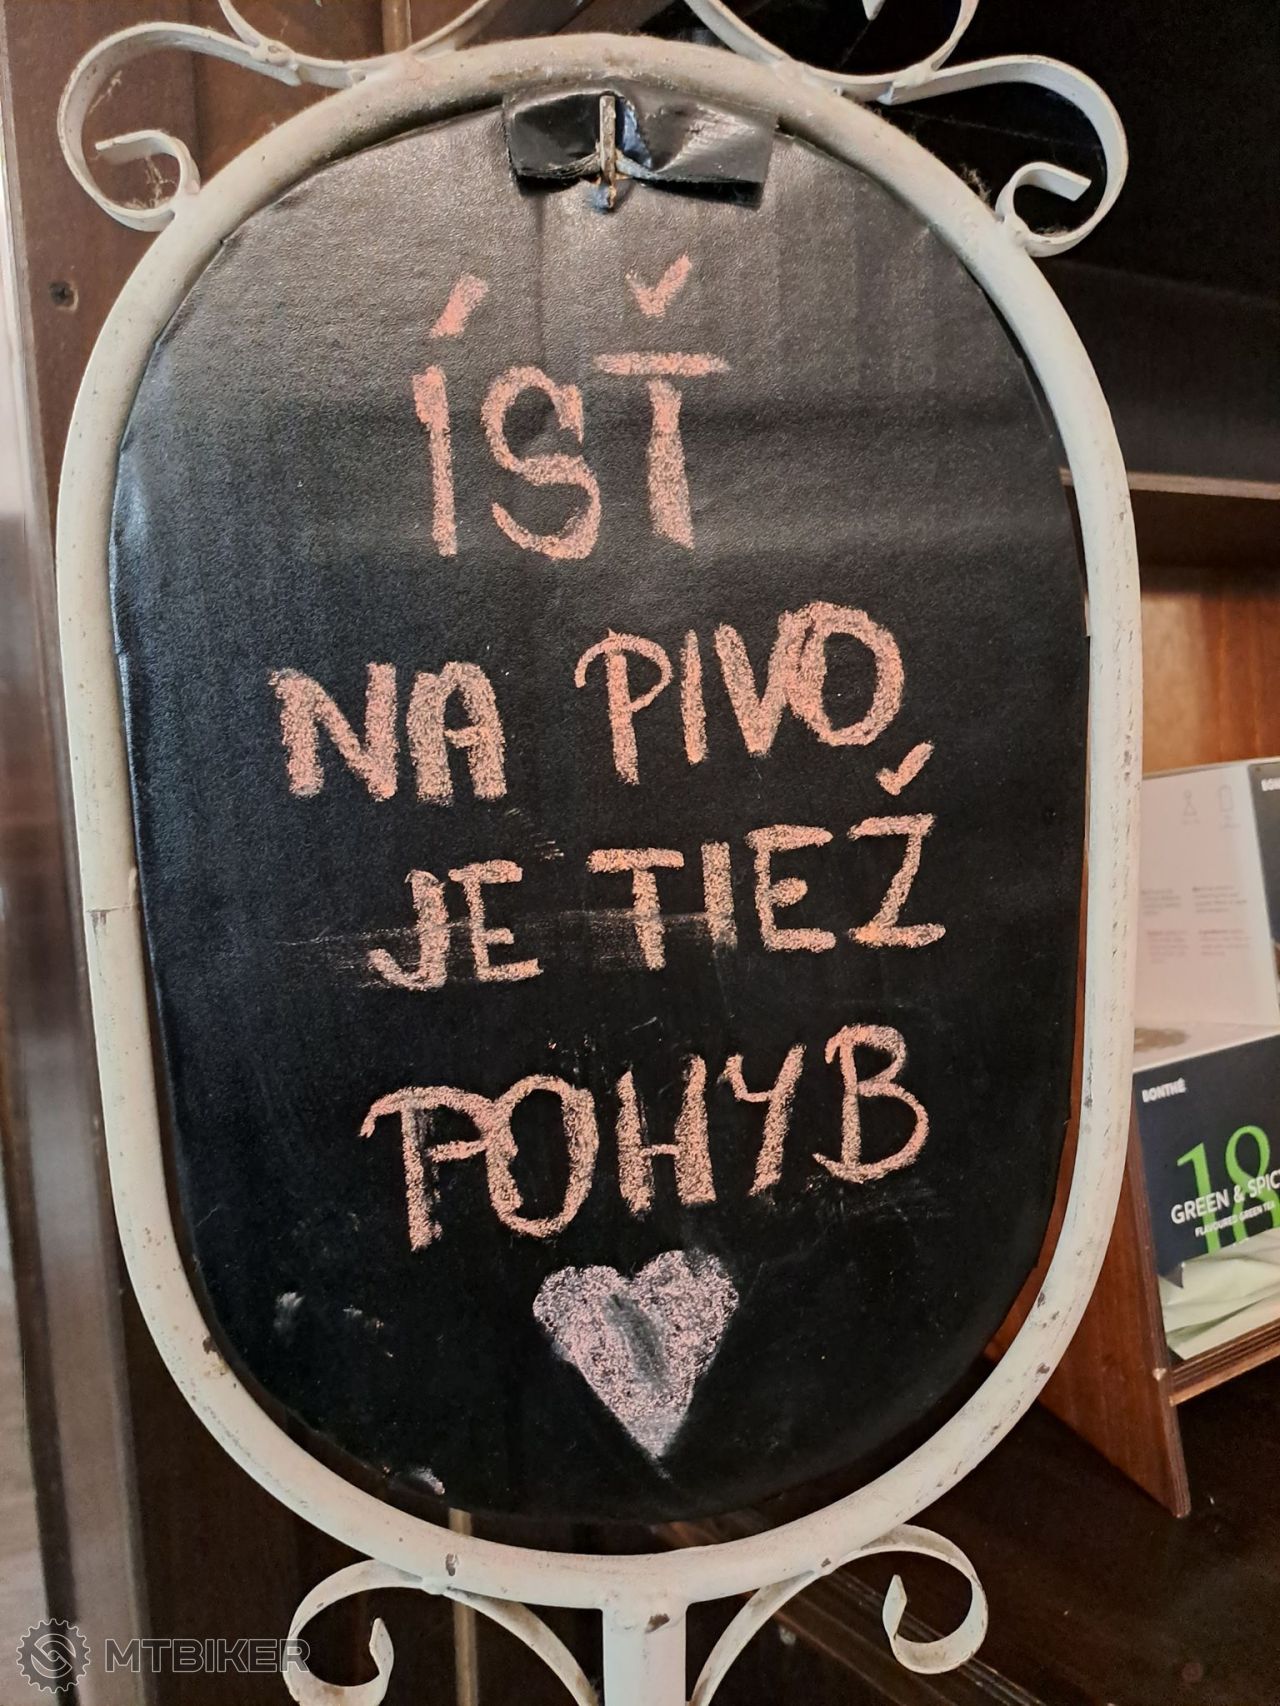 ÍSŤ
NA PIVO
JE TIEŽ
POHYB
BONTHÉ
18
GREEN & SPIC
FLAVOURED GREEN TEA
MTBIKER